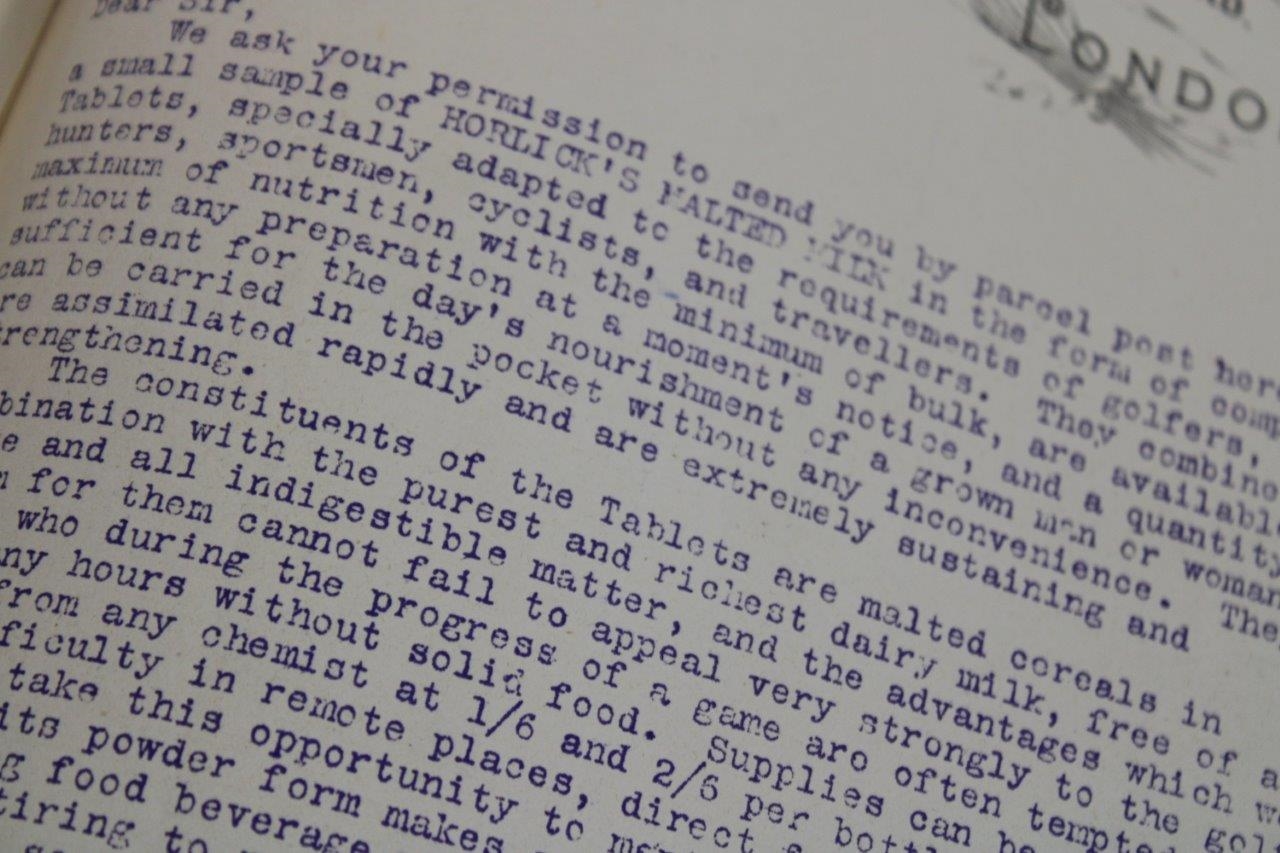 LONDO
Dear Sir,
We ask your permission to send you by parcel post here
a small sample of HORLICK'S MALTED MILK in the form of comp
Tablets, specially adapted to the requirements of golfers,
hunters, sportsmen, cyclists, and travellers. They combine
maximum of nutrition with the minimum of bulk, are available
without any preparation at a moment's notice, and a quantity
sufficient for the day's nourishment of a grown man or woman
can be carried in the pocket without any inconvenience. They
re assimilated rapidly and are extremely sustaining and
trengthening.
The constituents of the Tablets are malted cereals in
bination with the purest and richest dairy milk, free of a
e and all indigestible matter, and the advantages which w
for them cannot fail to appeal very strongly to the golf
who during the progress of a game are often tempted
ny hours without solid food. Supplies can be
from any chemist at 1/6 and 2/6 per bottl
ficulty in remote places, direct
take this opportunity to men
its powder form makes
g food beverage
tiring to